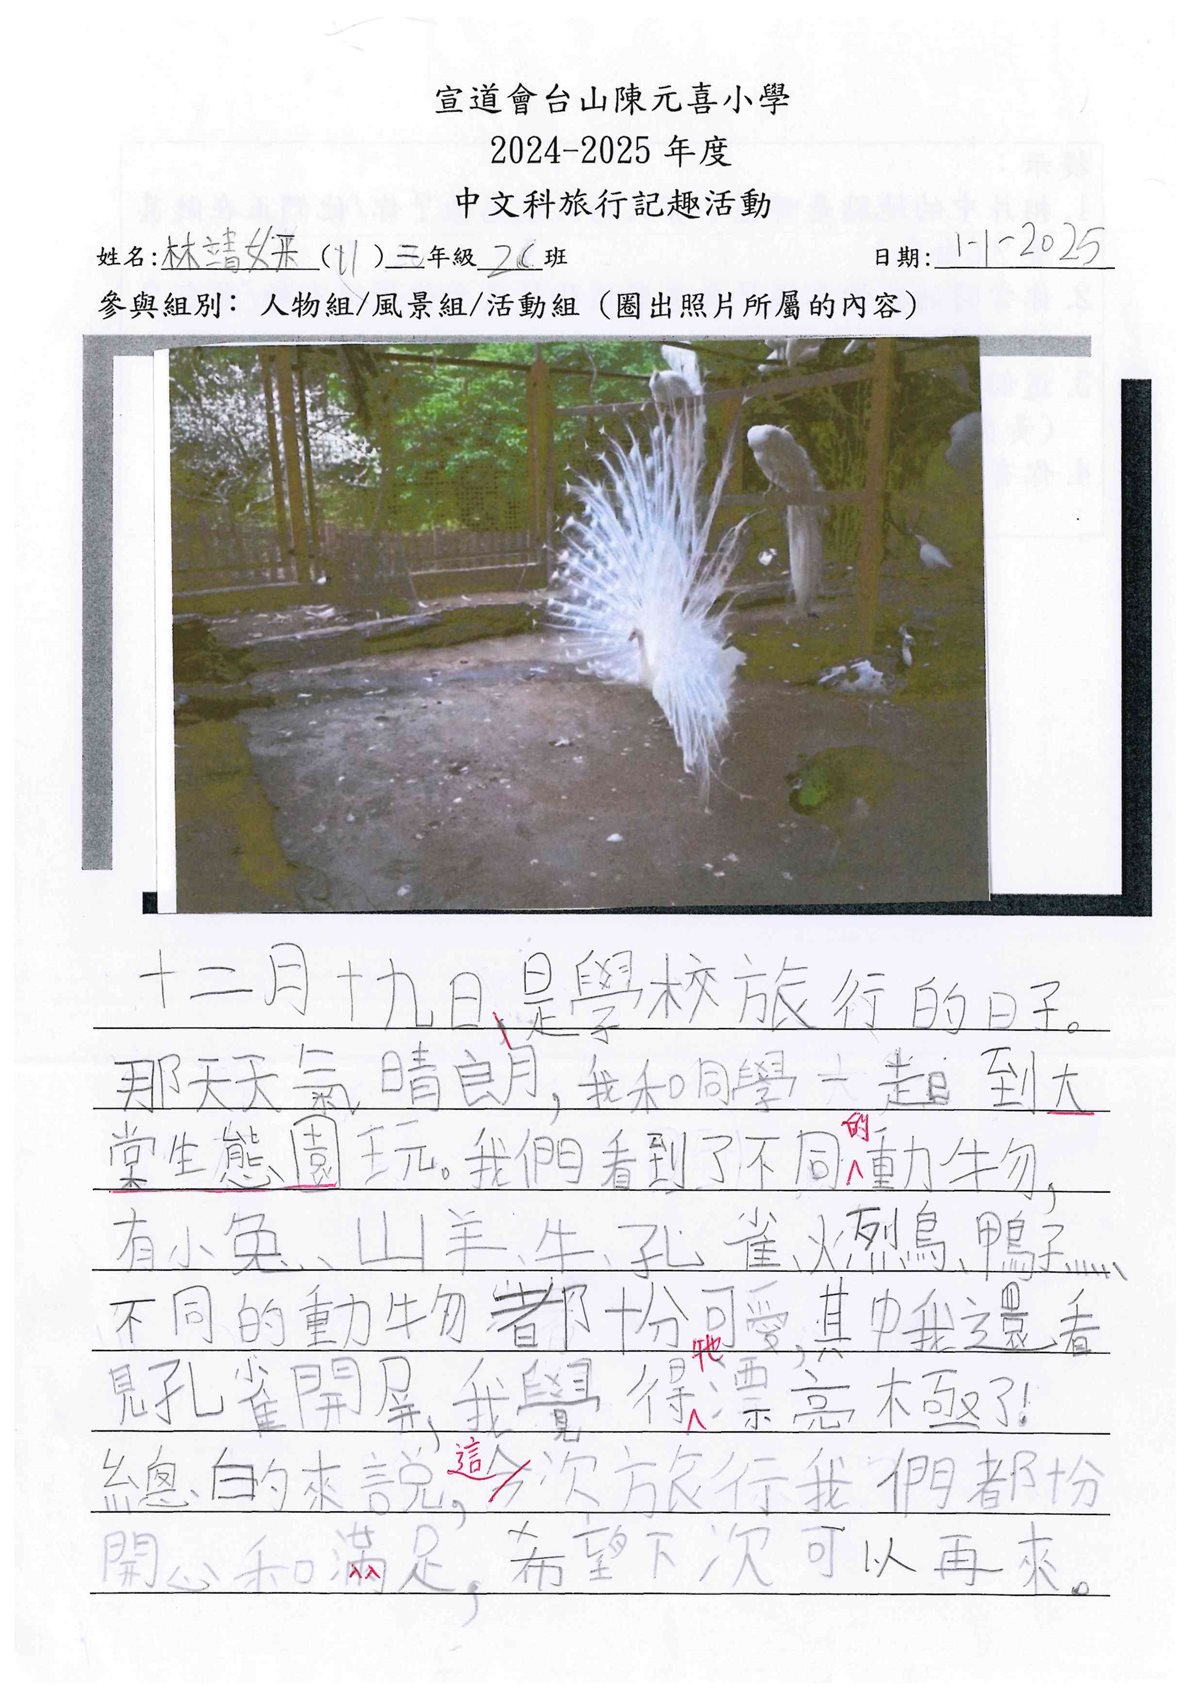 宣道會台山陳元喜小學
2024-2025 年度
中文科旅行記趣活動
姓名:林靖 ( ) 三 年級 2C 班 日期: 1-1-2025
參與組別：人物組/風景組/活動組（圈出照片所屬的內容）
十二月十九日，是學校旅行的日子。
那天天氣晴朗，我和同學一起到大
棠生態園玩。我們看到了不同的動物，
有小兔、山羊、牛、孔雀、火烈鳥、鴨子……
不同的動物都十分可愛，其中我還看
見孔雀開屏，我覺得牠漂亮極了！
總的來說，這今次旅行我們都十分
開心和滿足，希望下次可以再來。